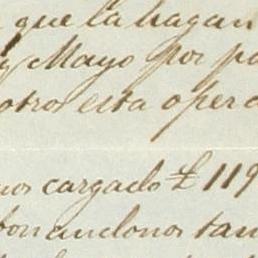 que la hagan
y Mayo por po
otros esta opera
nos cargado £ 119
bonandonos tam